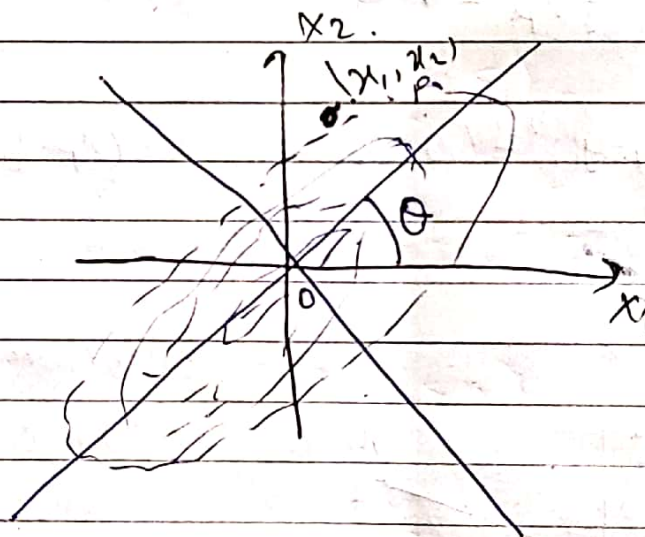 X2.
(x1, x2)
θ
0
X